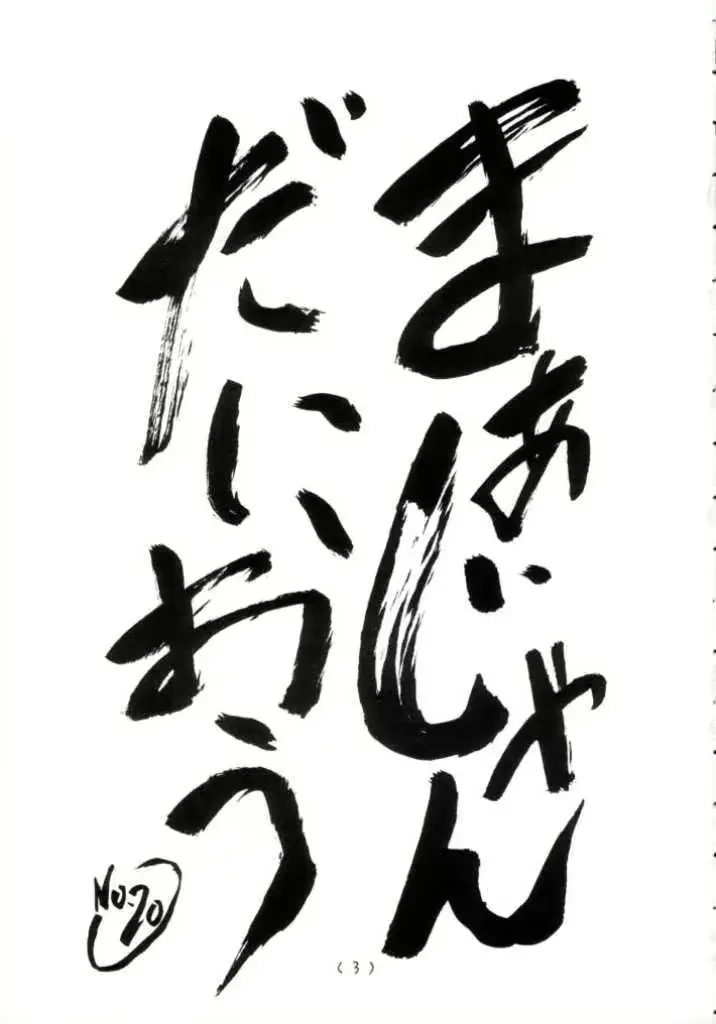 まぁじゃん
だいおう
No.20
(3)